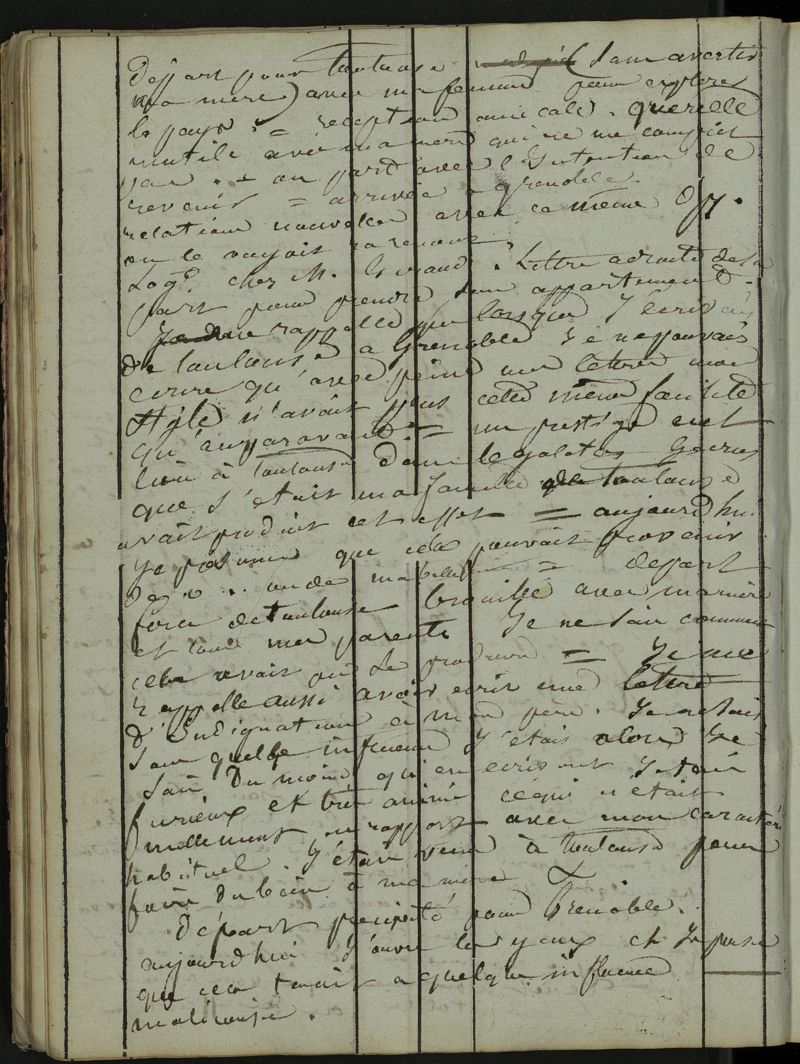 Départ pour Toulouse (sans avertir
ma mere) avec ma femme pour explorer
le pays. = reception amicale. querelle
inutile avec ma mere qui ne me comprit
pas. = on part avec l'Intention de
revenir = arrivée a grenoble
relations nouvelles avec ce même
on le voyait rarement
Log. chez M. Giraud. Lettre adroite de sa
part pour prendre son appartement.
Je me rappelle que lorsque J'ecrivais
de toulouse a Grenoble Je ne pouvais
ecrire qu'avec peine mes lettres mon
style n'avait plus cette même facilité
qu'auparavant = un prestige eut
lieu à toulouse dans le galetas Je crus
que c'etait ma famille de toulouse
avait produit cet effet = aujourd'hui
Je presume que cela pouvait provenir
de ... ou de ma = depart
forcé de toulouse brouillé avec ma mère
et tous mes parents Je ne sais comment
cela avait pu se produire = Je me
rappelle aussi avoir ecrit une lettre
d'Indignation à mon père. Je ne sais
sous quelle influence J'etais alors Je
sais du moins qu'en ecrivant J'etais
furieux et très animé ce qui n'etait
nullement en rapport avec mon caractère
habituel. J'étais venu à toulouse pour
faire du bien à ma mere
Départ precipité pour Grenoble.
aujourd'hui J'ouvre les yeux et Je pense
que cela tenait a quelque influence
malicieuse.